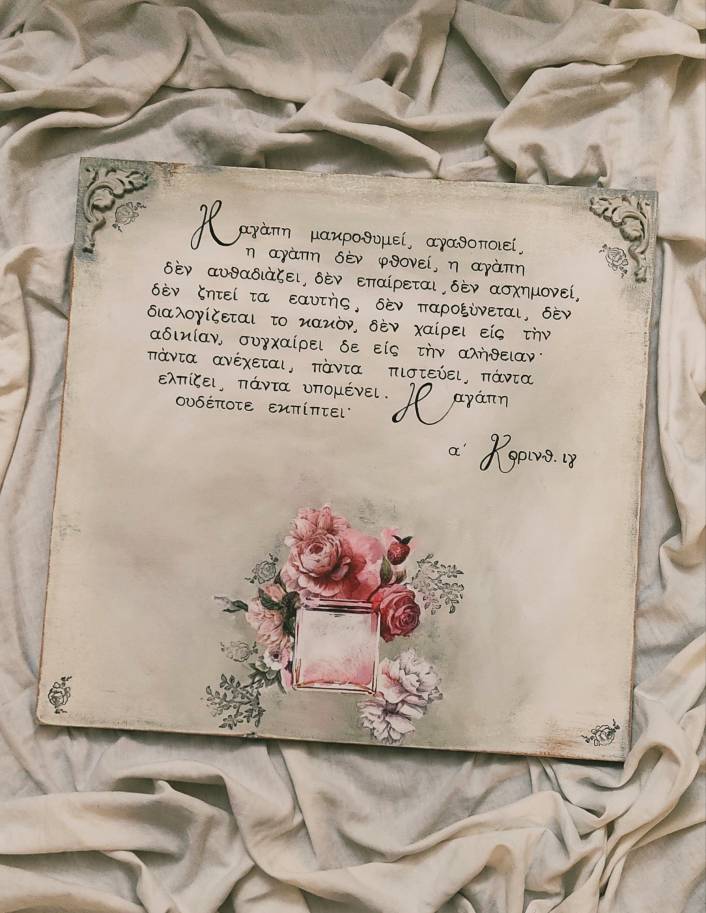 Η αγàπη μακροθυμεί, αγαθοποιεί,
η αγàπη δὲν φθονεί, η αγàπη
δὲν αυθαδιàζει, δὲν επαίρεται, δὲν ασχημονεί,
δὲν ζητεί τα εαυτὴς, δὲν παροξὺνεται, δὲν
διαλογίζεται το κακὸν, δὲν χαίρει είς τὴν
αδικίαν, συγχαίρει δε είς τὴν αλὴθειαν·
πàντα ανέχεται, πàντα πιστεύει, πàντα
ελπίζει, πάντα υπομένει. Η αγάπη
ουδέποτε εκπίπτει·
α΄ Κορινθ. ιγ